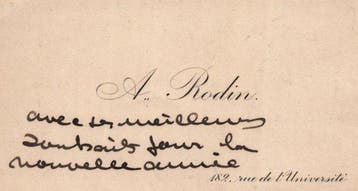 A. Rodin.
avec ses meilleurs
souhaits pour la
nouvelle année
182, rue de l'Université